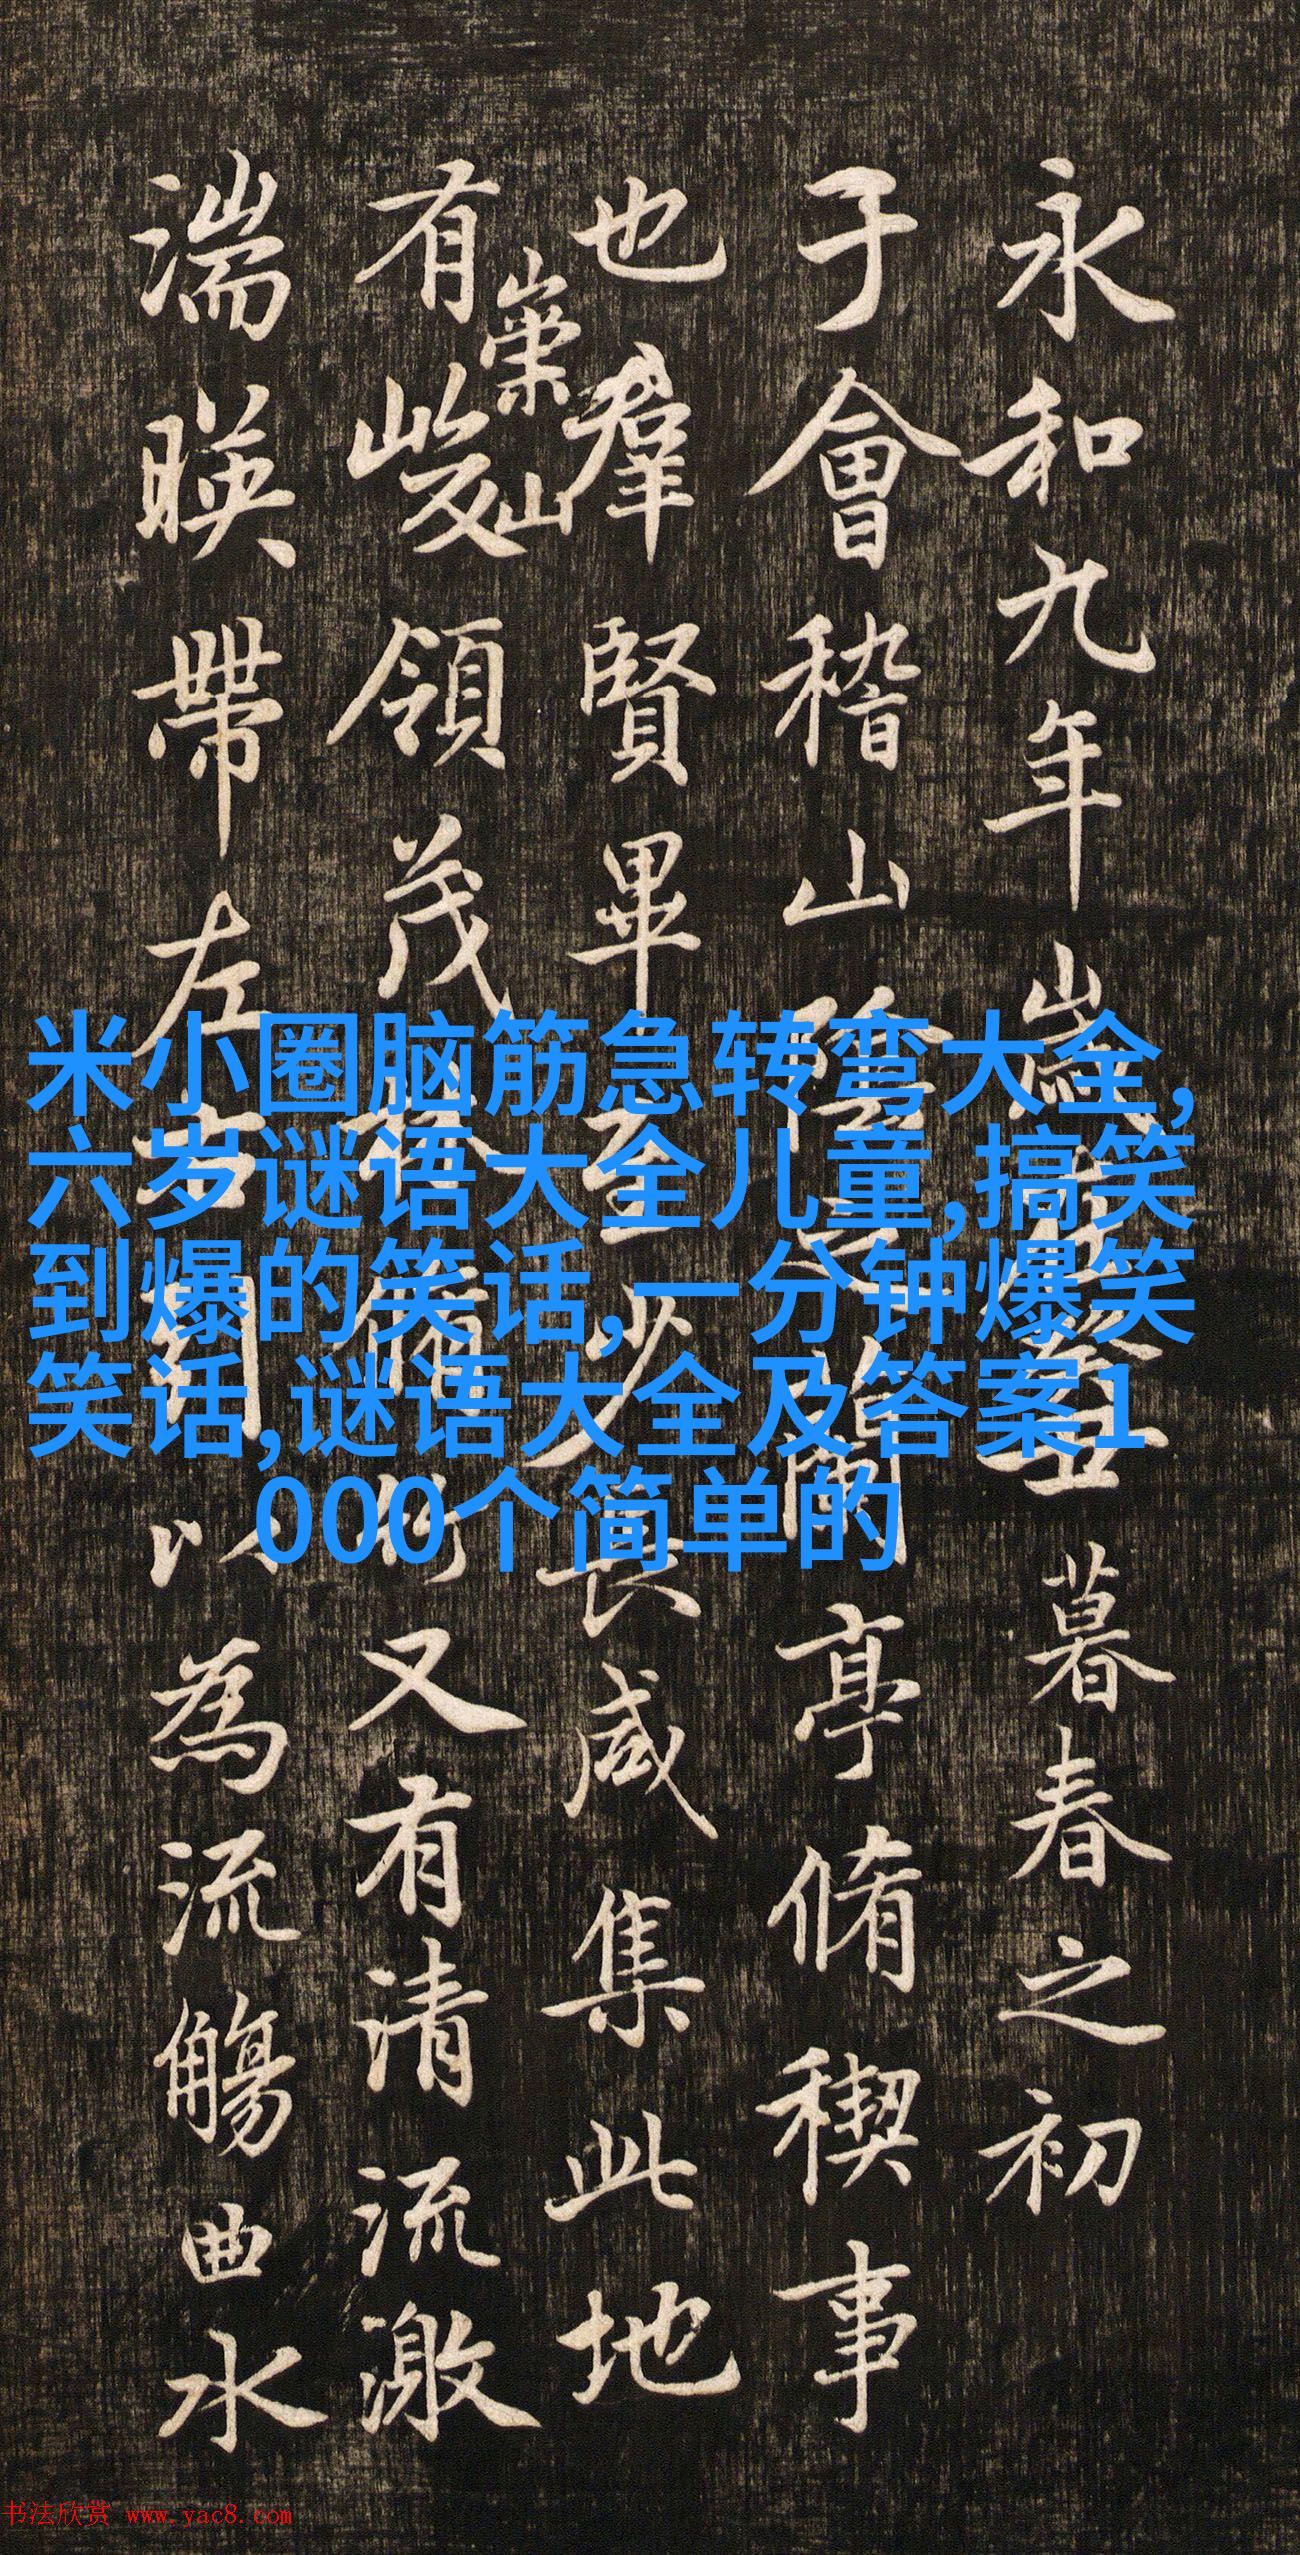 永和九年歲在癸丑暮春之初
于會稽山陰之蘭亭脩稧事
也羣賢畢至少長咸集此地
有崇山峻領茂林脩竹又有清流激
湍暎帶左右引以為流觴曲水
米小圈脑筋急转弯大全,
六岁谜语大全儿童,搞笑
到爆的笑话,一分钟爆笑
笑话,谜语大全及答案1
000个简单的
书法欣赏 www.yac8.com